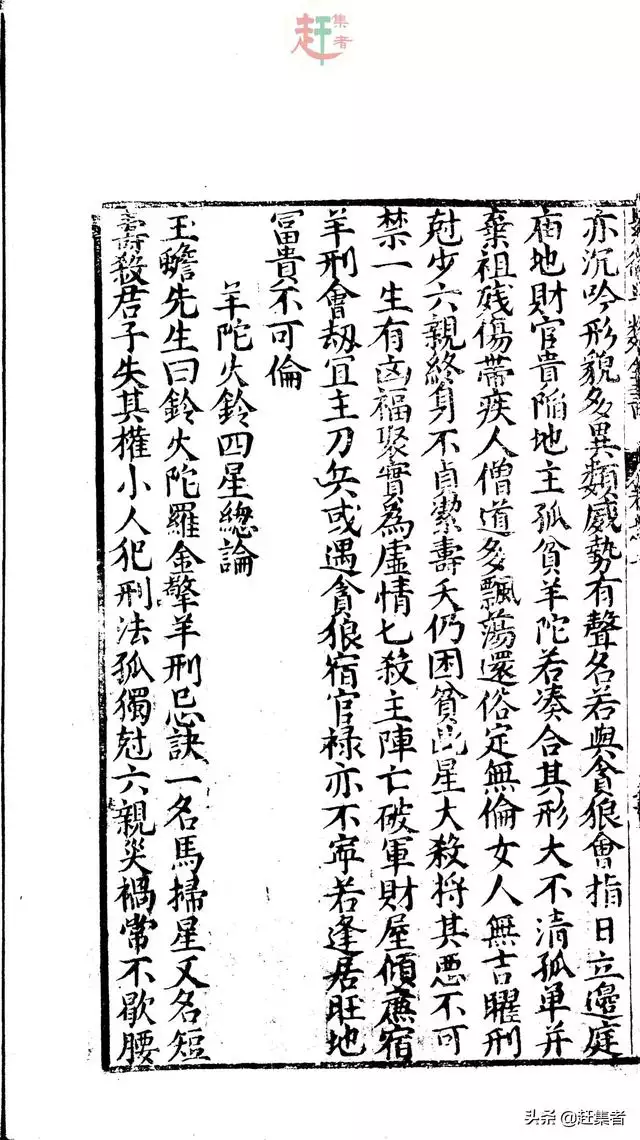 赶集者
亦沉吟形貌多異類威勢有聲名若與貪狼會指日立邊庭
庙地財官貴陷地主孤貧羊陀若凑合其形大不清孤单并
棄祖残傷帶疾人僧道多飄荡還俗定無倫女人無吉曜刑
尅少六親終身不貞潔壽夭仍困貧此星大殺将其悪不可
禁一生有凶福聚實為虛情七殺主陣亡破軍財屋傾廉宿
羊刑會劫冝主刀兵或遇貪狼宿官禄亦不寕若逢居旺地
冨貴不可倫
羊陀火鈴四星總論
玉蟾先生曰鈴火陀羅金擎羊刑忌訣一名馬掃星又名短
壽殺君子失其權小人犯刑法孤獨尅六親災禍常不歇腰
头条 @赶集者